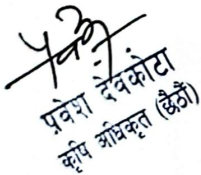 प्रवेश देवकोटा
कृषि अधिकृत (छैठौं)